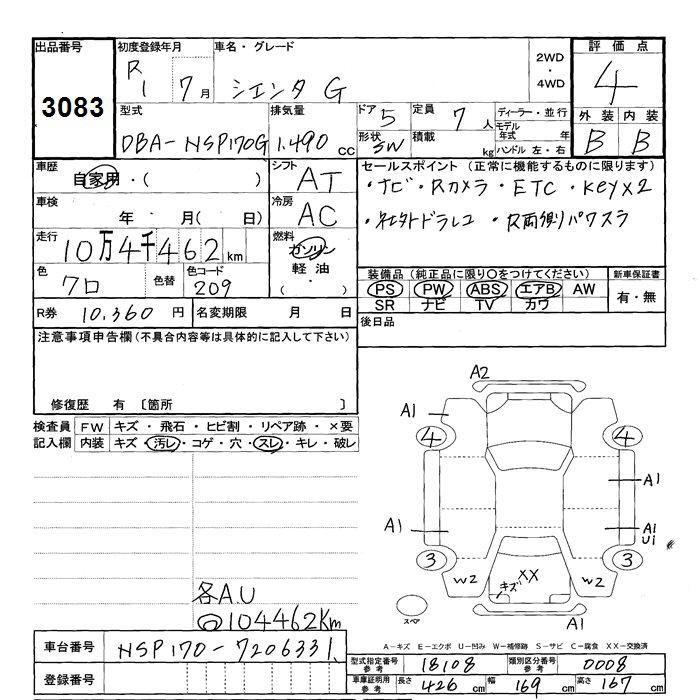 出品番号
3083
初度登録年月
R1 7月
車名・グレード
シエンタ G
2WD
・
4WD
評価点
4
外装 内装
B B
型式
DBA-NSP170G
排気量
1,490 cc
ドア 5
形状 SW
定員 7 人
積載 kg
ディーラー・並行
モデル年式 年
ハンドル 左・右
車歴
自家用・( )
シフト
AT
車検
年 月( 日)
冷房
AC
走行
10万4千462km
燃料
ガソリン
軽油
( ・ )
色
クロ
色替
色コード
209
R券 10,360 円
名変期限 月 日
セールスポイント (正常に機能するものに限ります)
・ナビ・Rカメラ・ETC・Keyx2
・社外ドラレコ ・R両側パワスラ
装備品 (純正品に限り○をつけてください)
PS PW ABS エアB AW
SR ナビ TV カワ
新車保証書
有・無
後日品
注意事項申告欄(不具合内容等は具体的に記入して下さい)
修復歴 有 〔箇所 〕
検査員記入欄
FW キズ・飛石・ヒビ割・リペア跡・×要
内装 キズ・汚レ・コゲ・穴・スレ・キレ・破レ
各A.U
104462Km
A2
A1
4
4
A1
A1
A1
U1
3
3
W2
キズ
XX
W2
A1
スペア
A−キズ E−エクボ U−凹み W−補修跡 S−サビ C−腐食 XX−交換済
車台番号 NSP170-7206331
登録番号
型式指定番号 参考 18108
類別区分番号 参考 0008
車庫証明用 参考 長さ 426 cm 幅 169 cm 高さ 167 cm